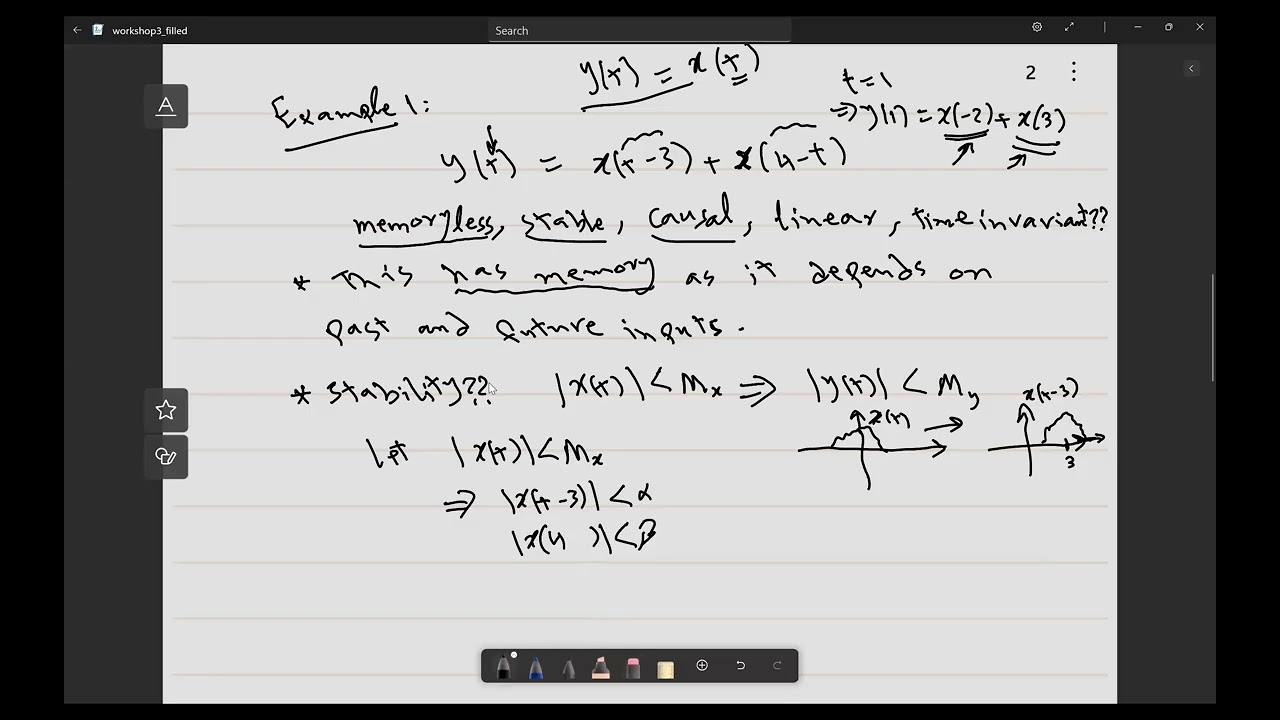 workshop3_filled
Search
2
y(t) = x(t)
t=1
Example 1:
⇒ y(1) = x(-2) + x(3)
y(t) = x(t-3) + x(4-t)
memoryless, stable, causal, linear, time invariant??
* This has memory as it depends on
past and future inputs.
* Stability?? |x(t)| < Mx ⇒ |y(t)| < My
x(t)
x(t-3)
3
let |x(t)| < Mx
⇒ |x(t-3)| < α
|x(4 )| < β